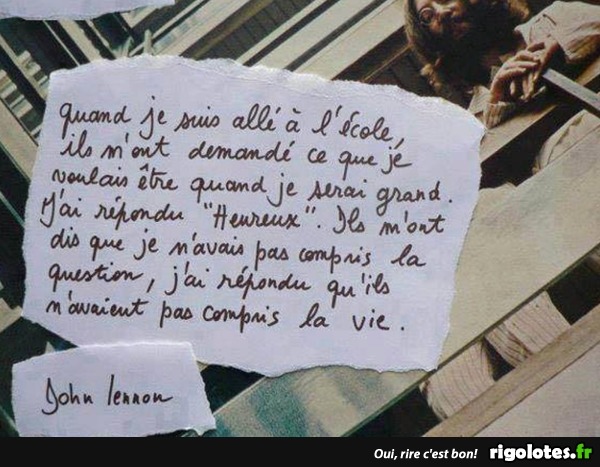 quand je suis allé à l'école,
ils m'ont demandé ce que je
voulais être quand je serai grand.
J'ai répondu "Heureux". Ils m'ont
dis que je n'avais pas compris la
question, j'ai répondu qu'ils
n'avaient pas compris la vie.
John lennon
Oui, rire c'est bon! rigolotes.fr